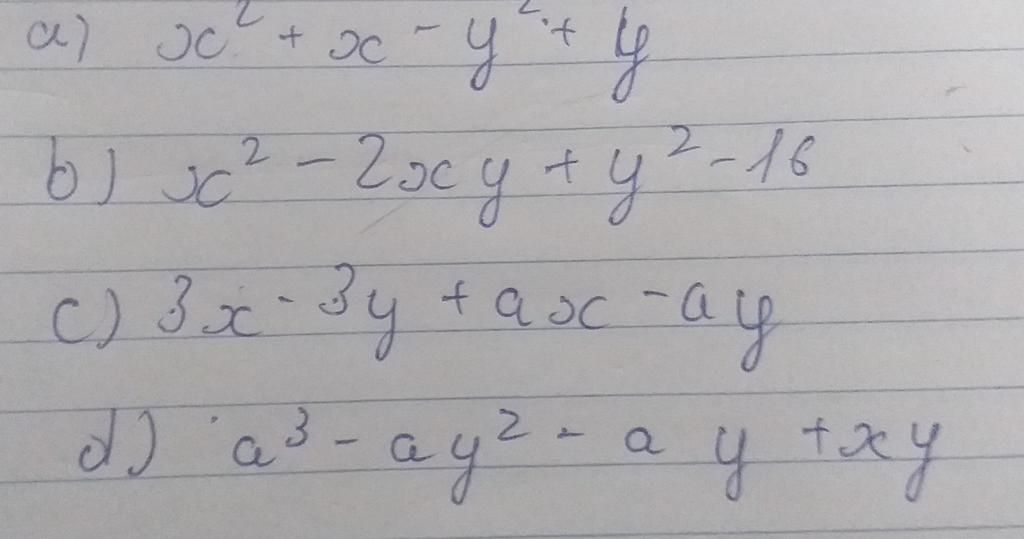 a) x² + x - y² + y
b) x² - 2xy + y² - 16
c) 3x - 3y + ax - ay
d) a³ - ay² - a y + xy